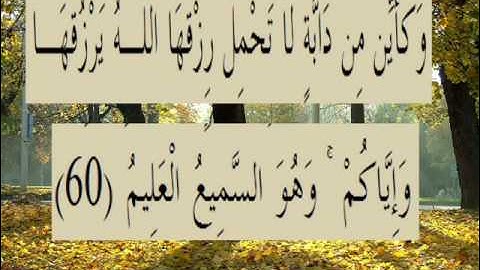 وَكَأَيِّن مِن دَابَّةٍ لَا تَحْمِلُ رِزْقَهَا اللَّهُ يَرْزُقُهَا
وَإِيَّاكُمْ ۚ وَهُوَ السَّمِيعُ الْعَلِيمُ (60)